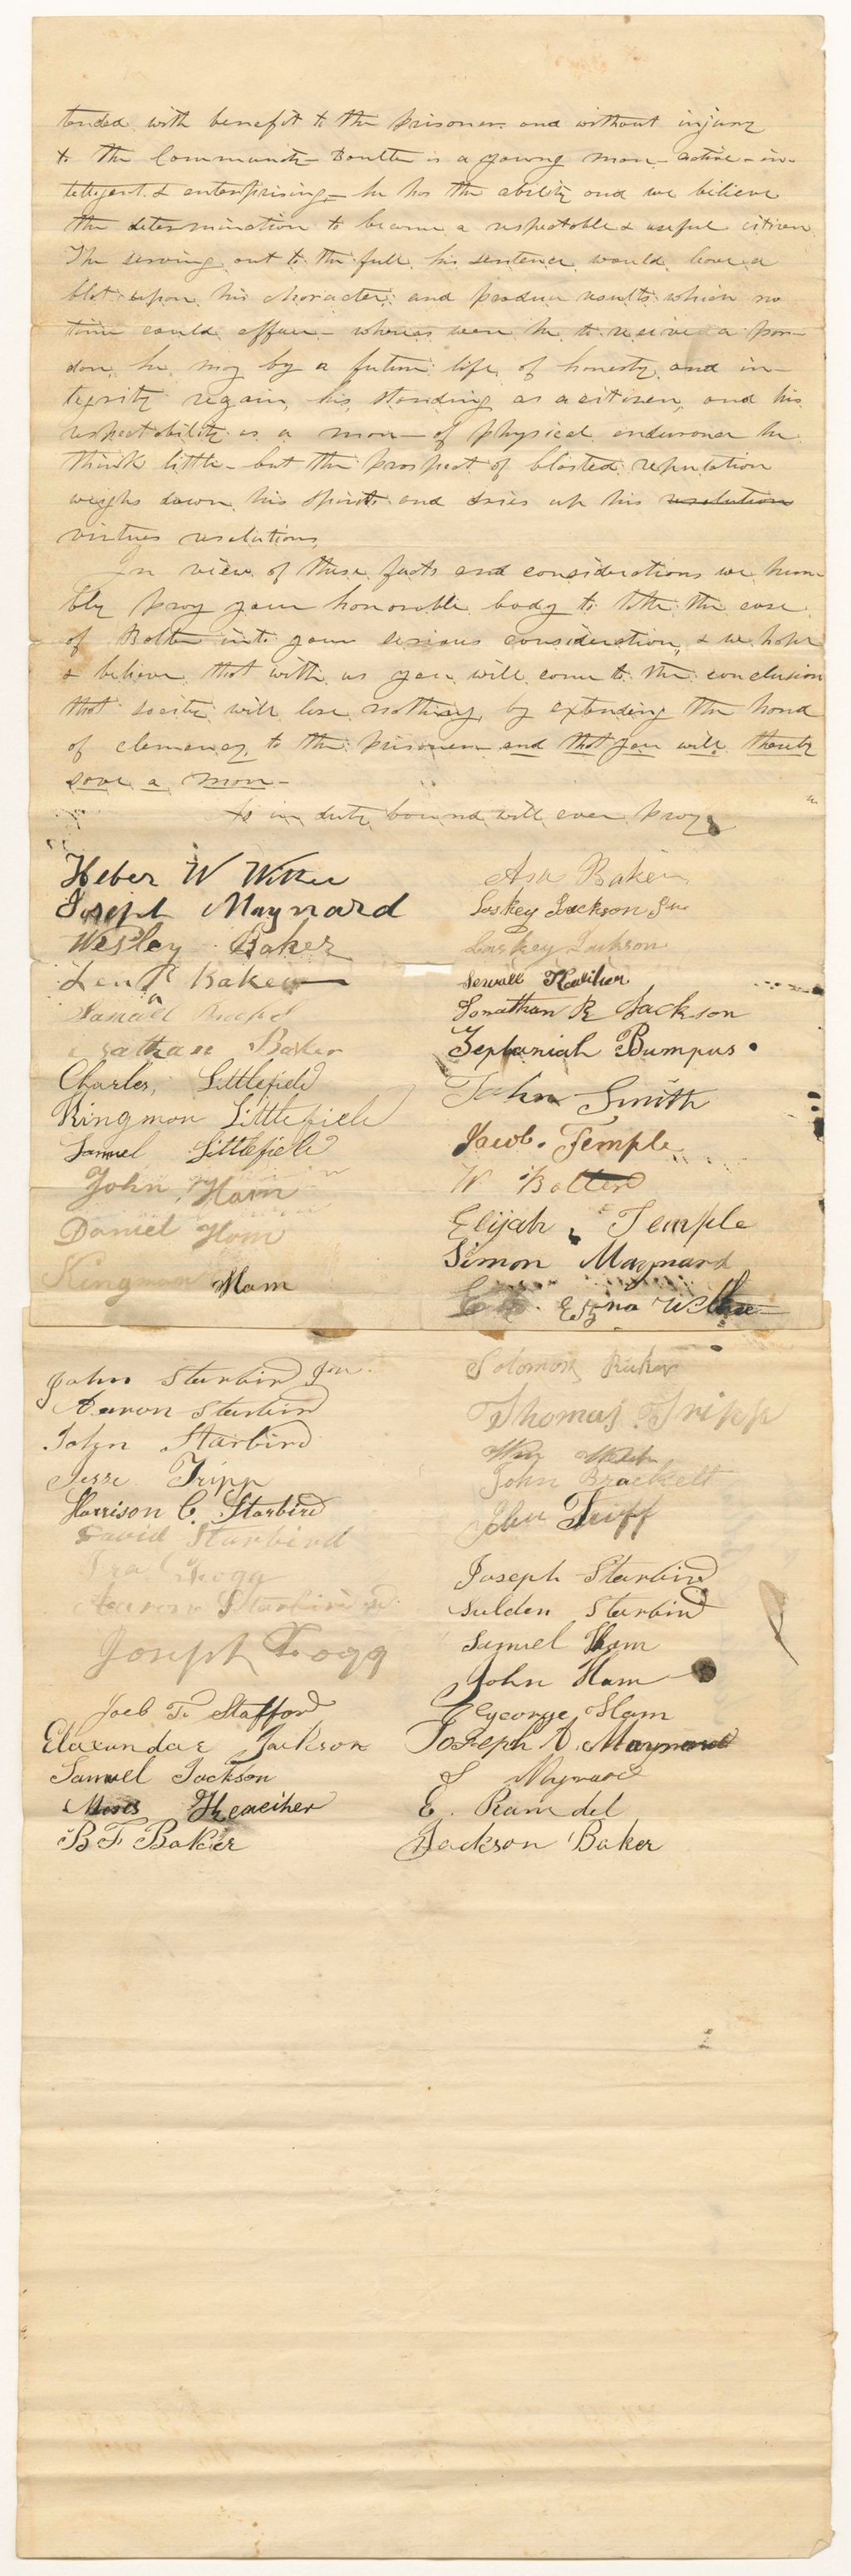 tended with benefit to the prisoner and without injury
to the Community Boulter is a young man active - in-
telligent & enterprising - he has the ability and we believe
the determination to become a respectable & useful citizen
The serving out to the full his sentence would leave a
blot upon his character and produce results which no
time could efface - whereas were he to receive a par-
don he may by a future life of honesty and in-
tegrity regain his standing as a citizen and his
respectability as a man - of physical endurance he
thinks little - but the prospect of blasted reputation
weighs down his spirits and dries up his resolutions
virtues resolutions
In view of these facts and considerations we hum
bly pray your honorable body to take the case
of Bolter into your serious consideration, & we hope
& believe that with us you will come to the conclusion
that society will lose nothing by extending the hand
of clemency to the prisoner and that you will thereby
save a man -
As in duty bound will ever pray
Heber W
Asa Baker
Joseph Maynard
Laskey Jackson Jur
Wesley Baker
Laskey Jackson
Baker
Sewall
Jonathan R Jackson
Baker
Zephaniah Bumpus
Charles Littlefield
John Smith
Kingmon Littlefield
Samuel Littlefield
Jacob Temple
John Ham
W Bolter
Daniel Ham
Elijah Temple
Kingman Ham
Simon Maynard
John Starbird Jun
Solomon
Aaron Starbird
Thomas Tripp
John Starbird
Jesse Tripp
John Brackett
Harrison C. Starbird
Tripp
David Starbird
Ira Fogg
Joseph Starbird
Aaron Starbird
Sulden Starbird
Joseph Fogg
Samuel Ham
John Ham
Joel F. Stafford
George Ham
Elaxandar Jackson
Joseph A. Maynard
Samuel Jackson
Maynard
Moses
E. Ramdel
B F Baker
Jackson Baker